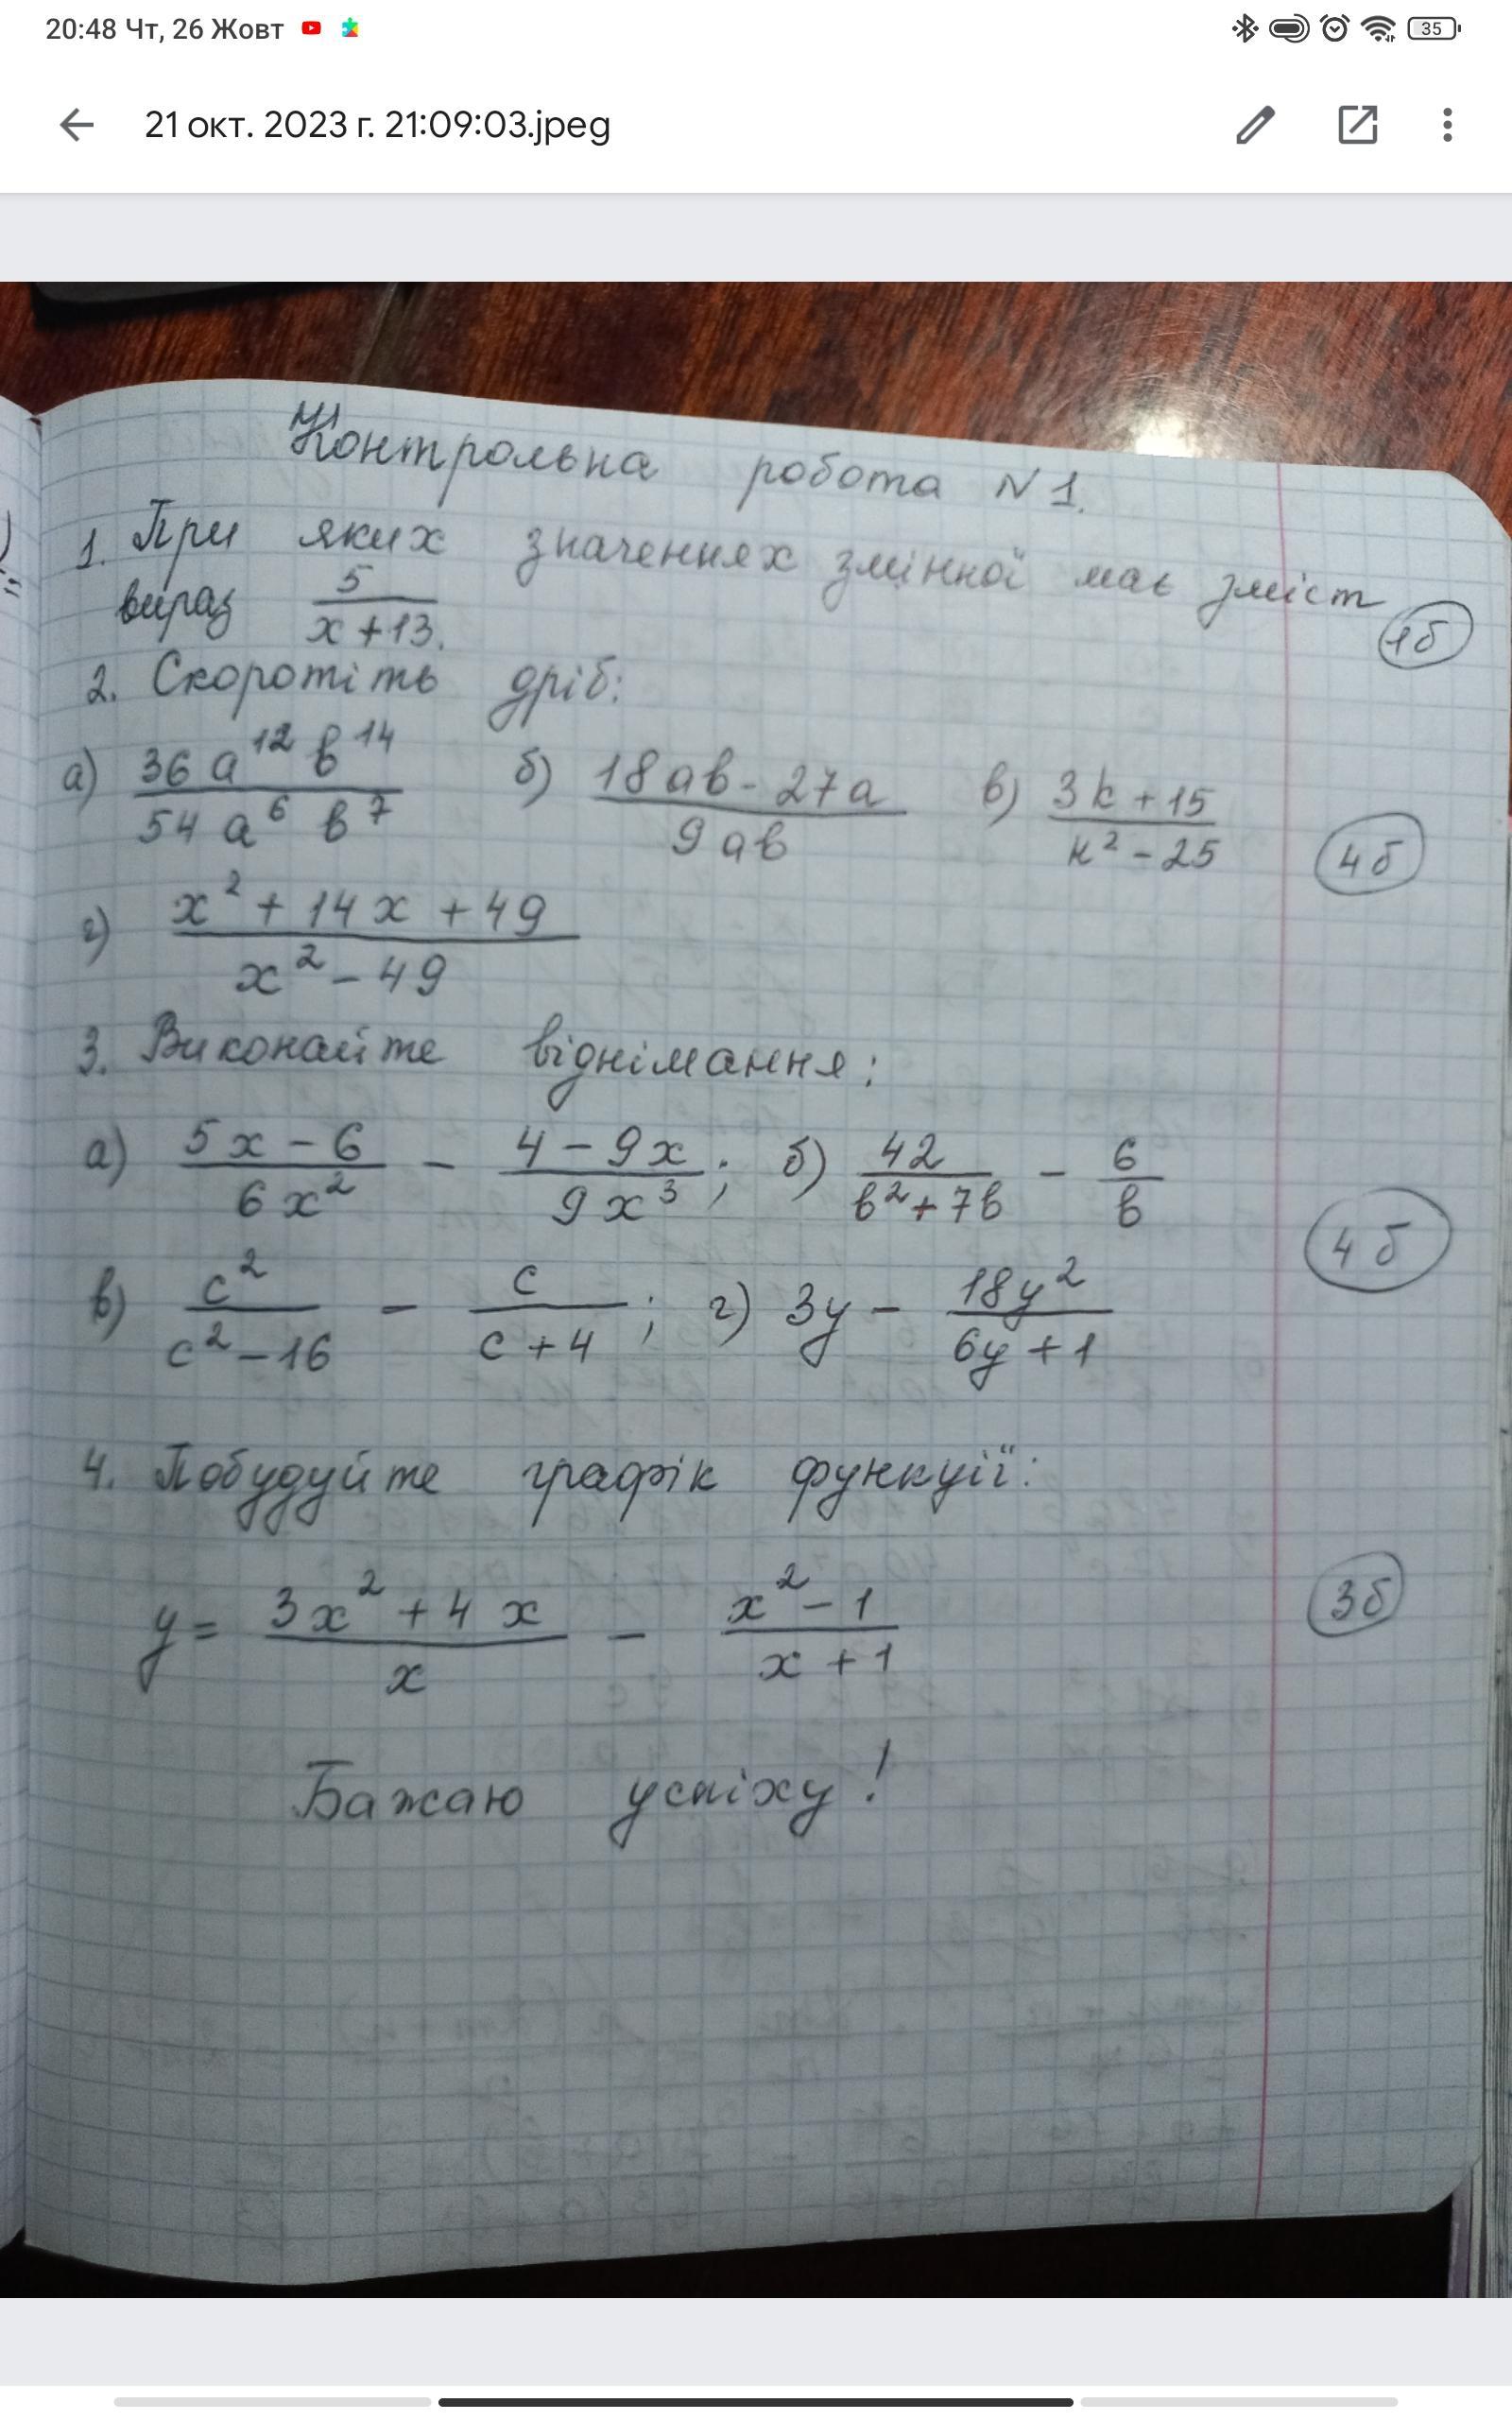 20:48 Чт, 26 Жовт
35
21 окт. 2023 г. 21:09:03.jpeg
Контрольна робота N 1.
1. При яких значеннях змінної має зміст
вираз 5/(x+13).
1б
2. Скоротіть дріб:
а) (36a^12 b^14)/(54a^6 b^7) б) (18ab - 27a)/(9ab) в) (3k + 15)/(k² - 25)
4б
г) (x² + 14x + 49)/(x² - 49)
3. Виконайте віднімання:
а) (5x - 6)/(6x²) - (4 - 9x)/(9x³); б) 42/(b² + 7b) - 6/b
4б
в) c²/(c² - 16) - c/(c + 4); г) 3y - 18y²/(6y + 1)
4. Побудуйте графік функції:
y = (3x² + 4x)/x - (x² - 1)/(x + 1)
3б
Бажаю успіху!